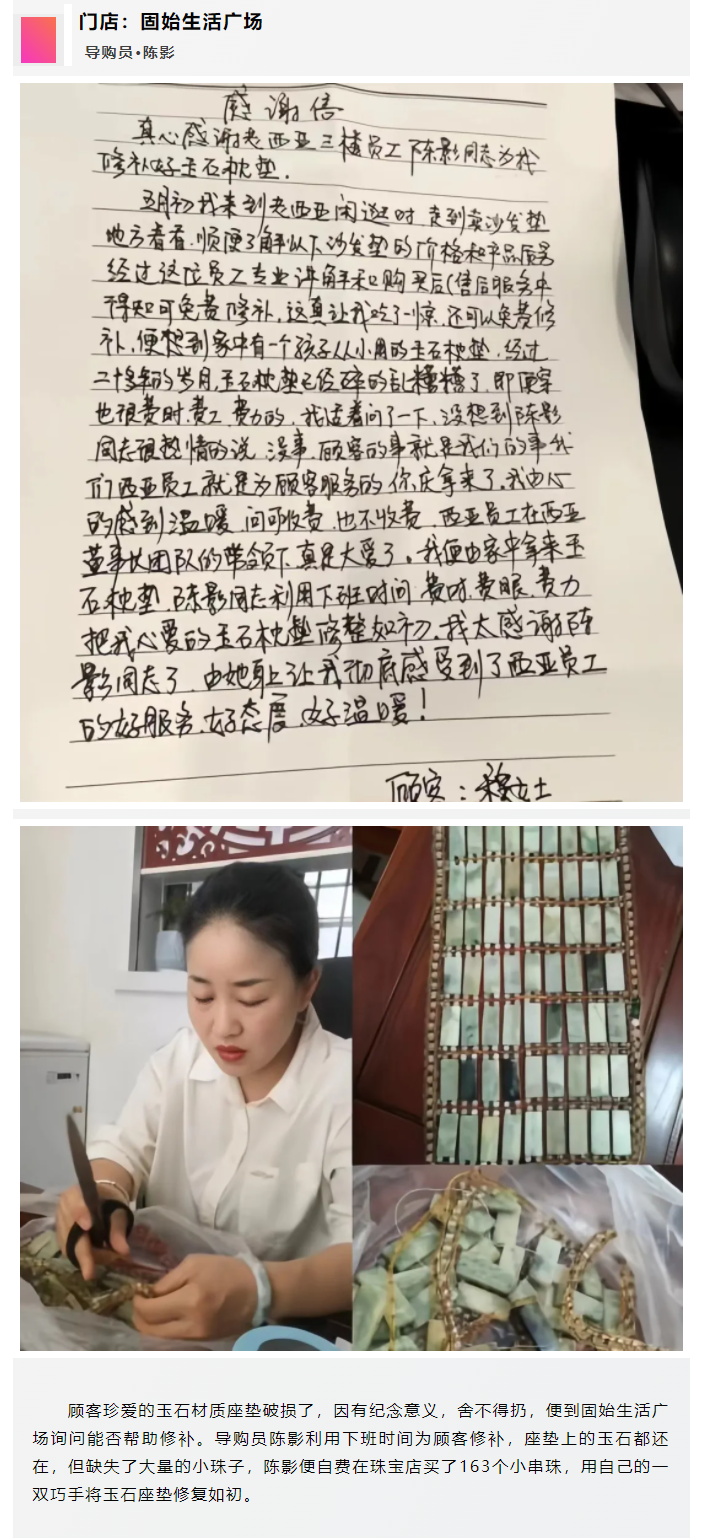 门店：固始生活广场
导购员•陈影
感谢信
真心感谢老西亚三楼员工陈影同志为我
修补好玉石枕垫.
五月初我来到老西亚闲逛时,走到卖沙发垫
地方看看.顺便了解以下沙发垫的价格和产品质另
经过这位员工专业讲解和购买后(售后服务中
得知可免费修补,这真让我吃了一惊,还可以免费修
补,便想到家中有一个孩子从小用的玉石枕垫,经过
二十多年的岁月,玉石枕垫已经碎的乱糟糟了.即便穿
也很费时.费工.费力的.我试着问了一下,没想到陈影
同志很热情的说.没事.顾客的事就是我们的事我
们西亚员工就是为顾客服务的你庆拿来了.我由心
的感到温暖.问可收费.也不收费.西亚员工在西亚
董事长团队的带领下真是大爱了.我便由家中拿来玉
石枕垫.陈影同志利用下班时间.费时.费眼.费力
把我心爱的玉石枕垫修整如初.我太感谢陈
影同志了.由她身上让我彻底感受到了西亚员工
的好服务.好态度.好温暖!
顾客:穆女士
顾客珍爱的玉石材质座垫破损了，因有纪念意义，舍不得扔，便到固始生活广
场询问能否帮助修补。导购员陈影利用下班时间为顾客修补，座垫上的玉石都还
在，但缺失了大量的小珠子，陈影便自费在珠宝店买了163个小串珠，用自己的一
双巧手将玉石座垫修复如初。